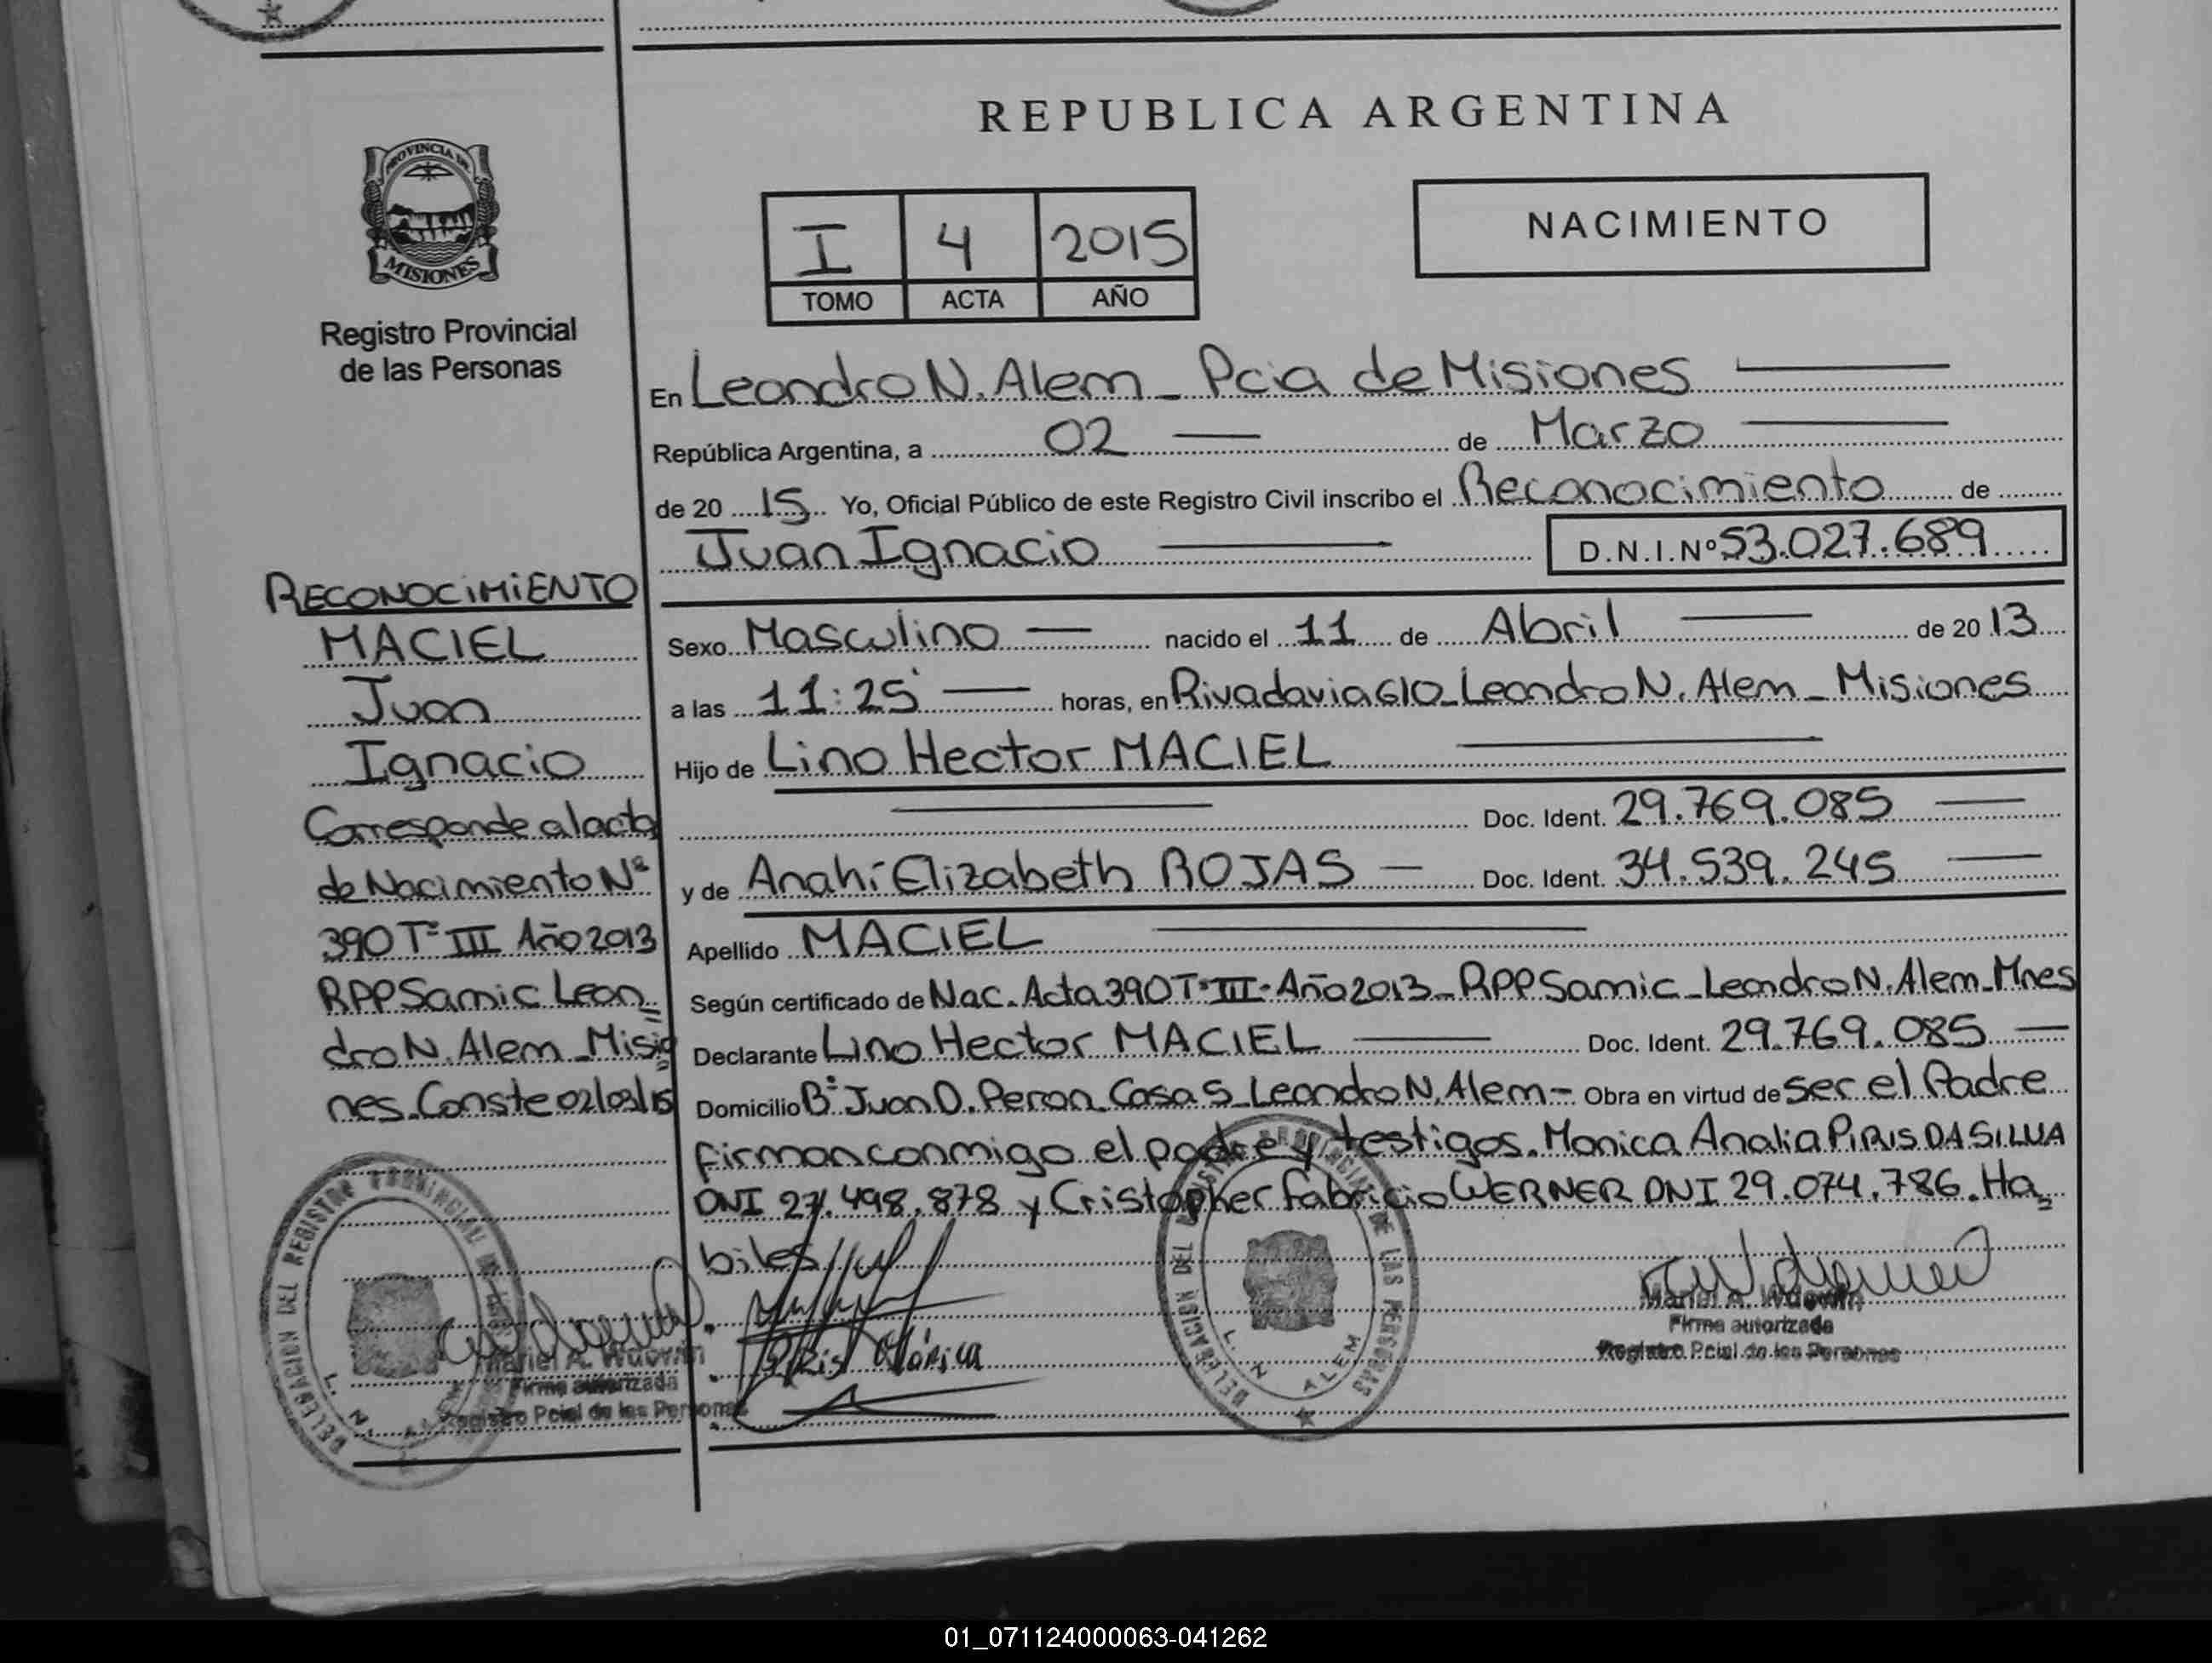 REPUBLICA ARGENTINA
PROVINCIA DE
MISIONES
Registro Provincial
de las Personas
I 4 2015
TOMO ACTA AÑO
NACIMIENTO
En Leandro N. Alem - Pcia de Misiones
República Argentina, a 02 de Marzo
de 20 15 Yo, Oficial Público de este Registro Civil inscribo el Reconocimiento de
Juan Ignacio D.N.I.Nº 53.027.689
Sexo Masculino nacido el 11 de Abril de 20 13
a las 11:25 horas, en Rivadavia 610 - Leandro N. Alem - Misiones
Hijo de Lino Hector MACIEL
Doc. Ident. 29.769.085
y de Anahí Elizabeth ROJAS - Doc. Ident. 34.539.245
Apellido MACIEL
Según certificado de Nac. Acta 390 Tº III - Año 2013 - RPP Samic - Leandro N. Alem - Mnes
Declarante Lino Hector MACIEL Doc. Ident. 29.769.085
Domicilio Bº Juan D. Peron Casa 5 - Leandro N. Alem - Obra en virtud de ser el Padre
firman conmigo el padre y testigos. Monica Analia PIRIS DA SILUA
DNI 27.498.878 y Cristopher Fabricio WERNER DNI 29.074.786. Ha=
biles
RECONOCIMIENTO
MACIEL
Juan
Ignacio
Corresponde al acta
de Nacimiento Nº
390 Tº III Año 2013
RPP Samic Lean=
dro N. Alem - Misio=
nes. Conste 02/03/15
DELEGACION DEL REGISTRO PROVINCIAL DE LAS PERSONAS
L. N. ALEM
Mariel A. Wdowin
Firma autorizada
Registro Pcial de las Personas
Piris Mónica
DELEGACION DEL REGISTRO PROVINCIAL DE LAS PERSONAS
L. N. ALEM
Mariel A. Wdowin
Firma autorizada
Registro Pcial de las Personas
01_071124000063-041262